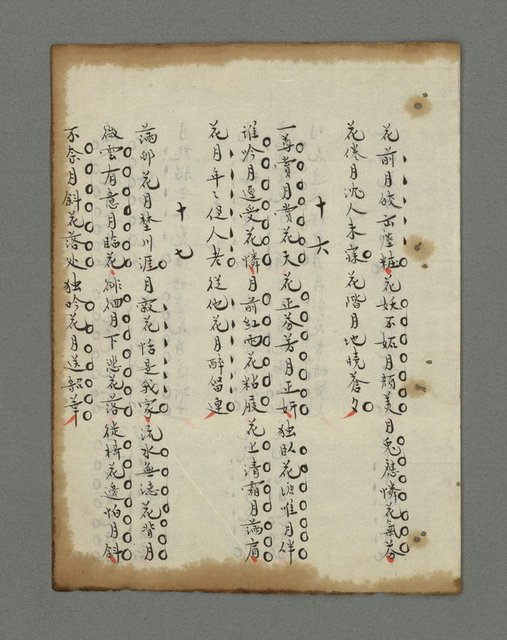 花前月皎缶塵粧花妖不妬月顏美月兎應憐花氣芬
花倦月沈人未寐花階月地曉蒼々
十六
一尊賞月賞花天花正芬芳月正妍独臥花滨惟月伴
誰吟月色受花憐月前紅雨花粘屐花上清霜月滿肩
花月年々但人老從他花月醉留連
十七
滿邨花月埜川涯月散花恬是我家流水無誌花背月
微雲有意月臨花徘徊月下悲花落徙倚花邊怕月斜
不奈月斜花落处独吟花月送韶華